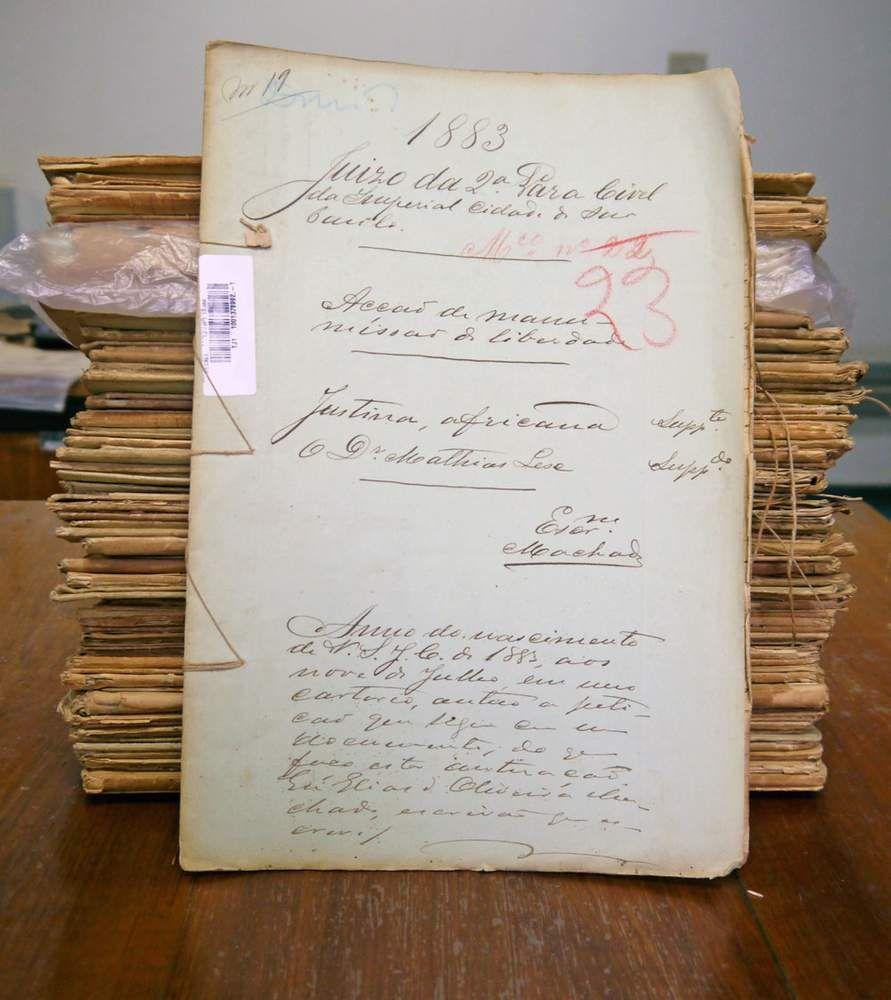 m 19
1883
Juizo da 2ª Vara Civel
da Imperial Cidade de Sm
Paulo.
Mço nº 22
23
Acção de manu-
missão de liberdade
Justina, africana Suppte
O Dr Mathias Lese Suppdo
Escrm
Machado
Anno do nascimento
de N. S. J. C. de 1883, aos
nove de Julho, em meu
cartorio, autúo a peti-
ção que segue em um
documento, do que
faço esta autuação
Eu Elias d' Oliveira Ma-
chado, escrivão que es-
crevi